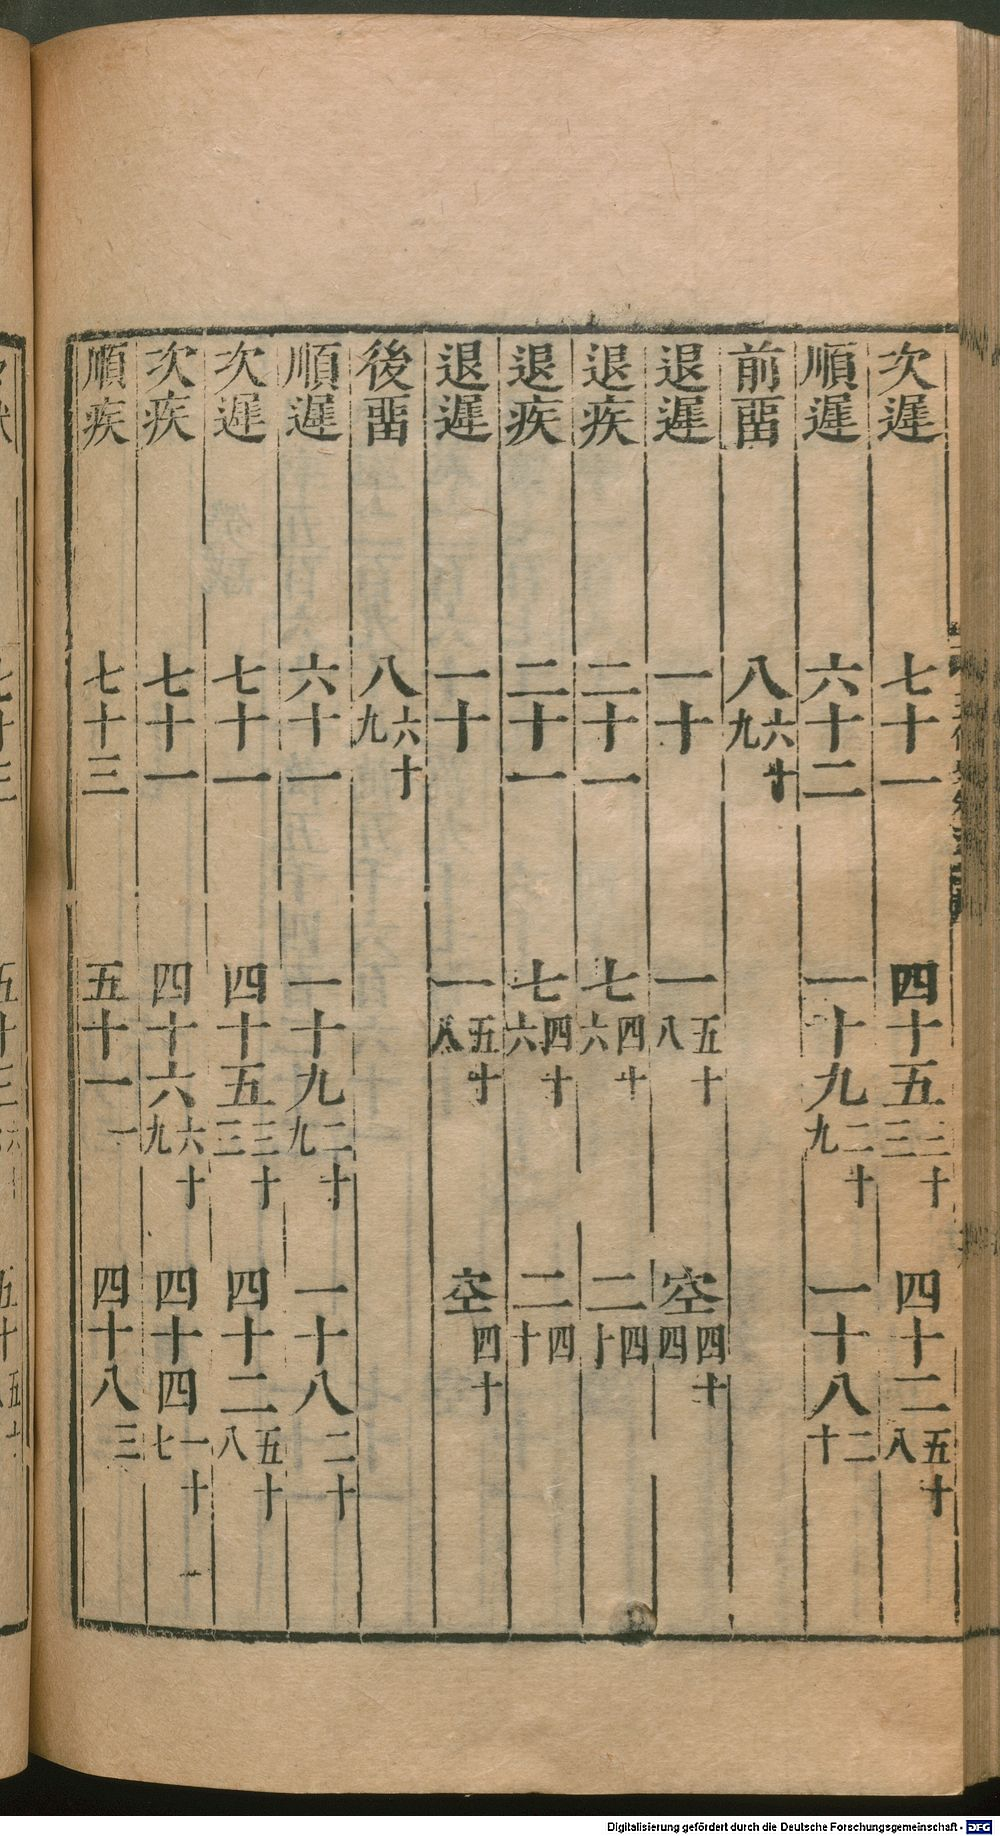 次遲 七十一 四十五 三十三 四十二 五十八
順遲 六十二 一十九 二十九 一十八 二十
前畱 八 六十九
退遲 一十 一 五十八 空 四十四
退疾 二十一 七 四十六 二 四十
退疾 二十一 七 四十六 二 四十
退遲 一十 一 五十八 空 四十
後畱 八 六十九
順遲 六十一 一十九 二十九 一十八 二十
次遲 七十一 四十五 三十三 四十二 五十八
次疾 七十一 四十六 六十九 四十四 一十七
順疾 七十三 五十一 一 四十八 三
Digitalisierung gefördert durch die Deutsche Forschungsgemeinschaft - DFG